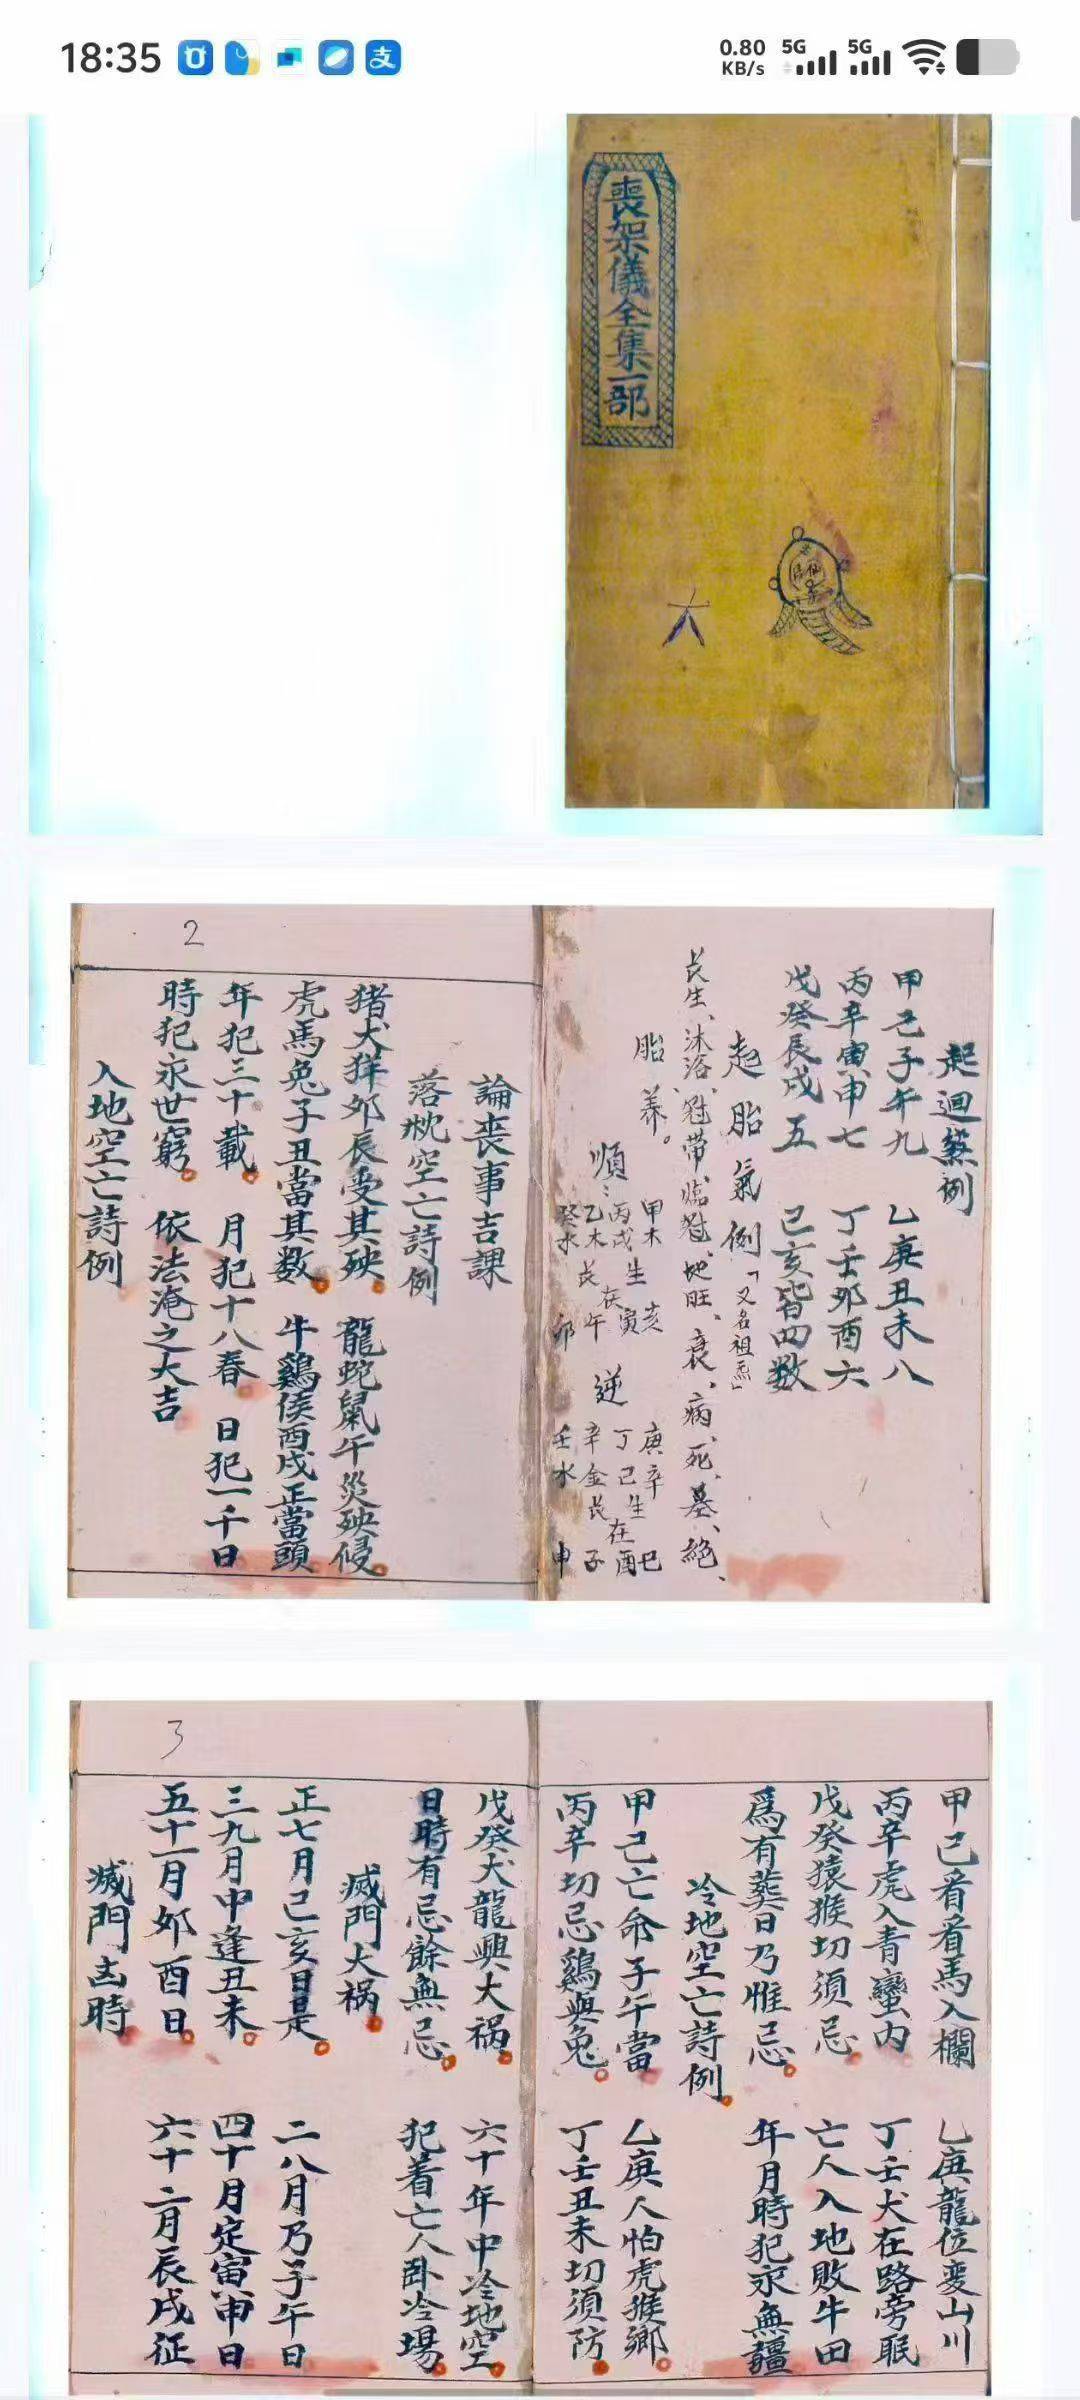 18:35
0.80 KB/s 5G 5G
喪架儀全集一部
六
起迴煞例
甲己子午九 乙庚丑未八
丙辛寅申七 丁壬卯酉六
戊癸辰戌五 己亥皆四数
起胎氣例「又名祖炁」
長生、沐浴、冠带、临冠、地旺、衰、病、死、墓、絶、
胎养。
順：甲木 丙戊生 乙木長 癸水 在 亥 寅 午 卯
逆 庚辛 丁己生 辛金長 壬水 在 巳 酉 子 申
2
論喪事吉課
落枕空亡詩例
猪犬羊卯辰受其殃 龍蛇鼠午災殃侵
虎馬兔子丑當其数 牛鷄侯酉戌正當頭
年犯三十載 月犯十八春 日犯一千日
時犯永世窮 依法淹之大吉
入地空亡詩例
甲己肴肴馬入欄 乙庚龍位变山川
丙辛虎入青蠻内 丁壬犬在路旁眠
戊癸猿猴切須忌 亡人入地败牛田
爲有葬日乃惟忌 年月時犯永無疆
冷地空亡詩例
甲己亡命子午當 乙庚人怕虎猴鄉
丙辛切忌鷄與兔 丁壬丑未切須防
3
戊癸犬龍興大祸 六十年中冷地空
日時有忌餘無忌 犯着亡人卧冷場
滅門大祸
正七月己亥日是 二八月乃子午日
三九月中逢丑未 四十月定寅申日
五十一月卯酉日 六十二月辰戌征
滅門凶時